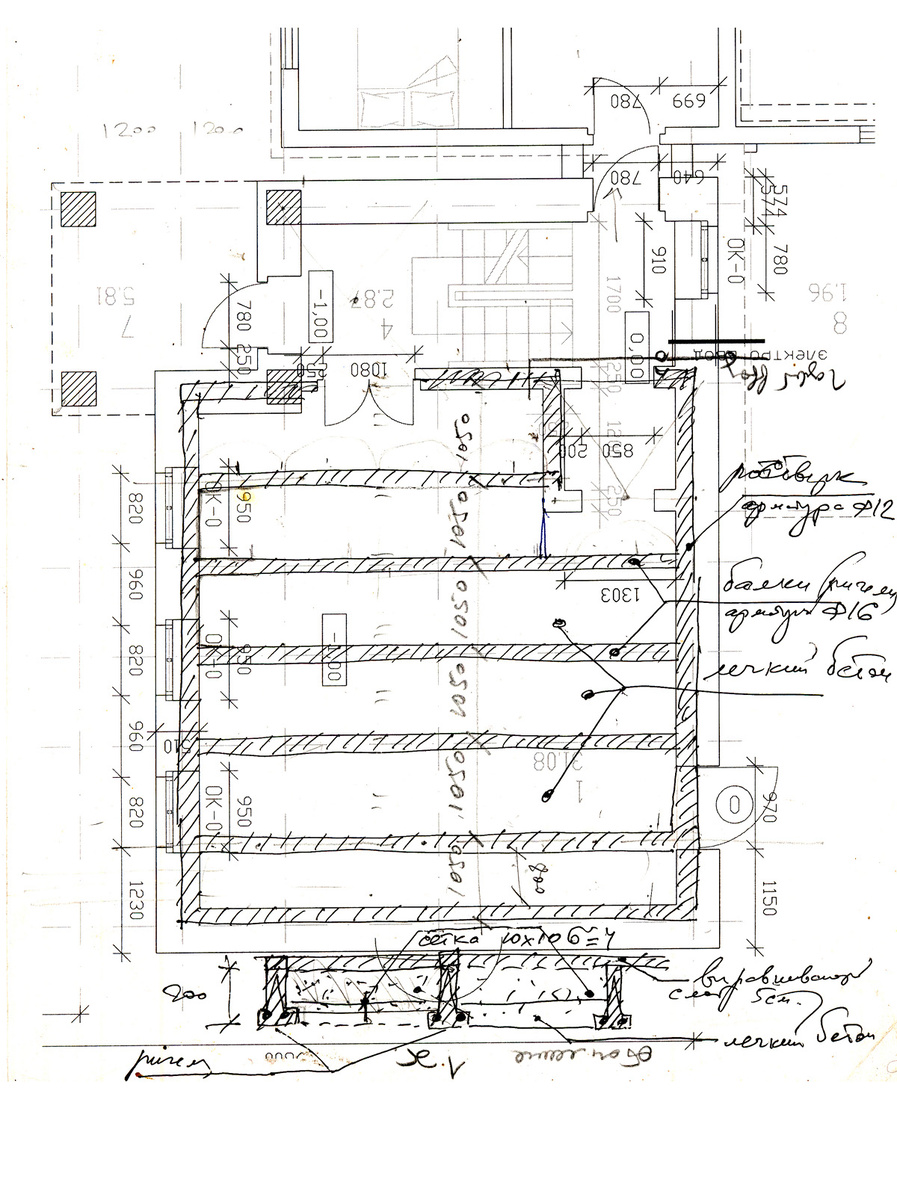 780
699
1200 1200
780
640
574
574
910
780
ОК-0
1700
-1,00
2.87
4
5.81
7
1.96
8
780
250
250
1080
0,00
ЭЛЕКТРО ВВОД
250
200
850
250
1050
1050
1050
1050
1050
1050
ростверк
арматура Ф12
820
ОК-0
950
960
1303
балки (ригели
арматура Ф16
820
ОК-0
950
-1,00
легкий бетон
960
510
31.08
1
820
ОК-0
950
970
800
1230
1150
сетка 10х10
выравнивающий
слой 5см.
200
легкий бетон
ригель